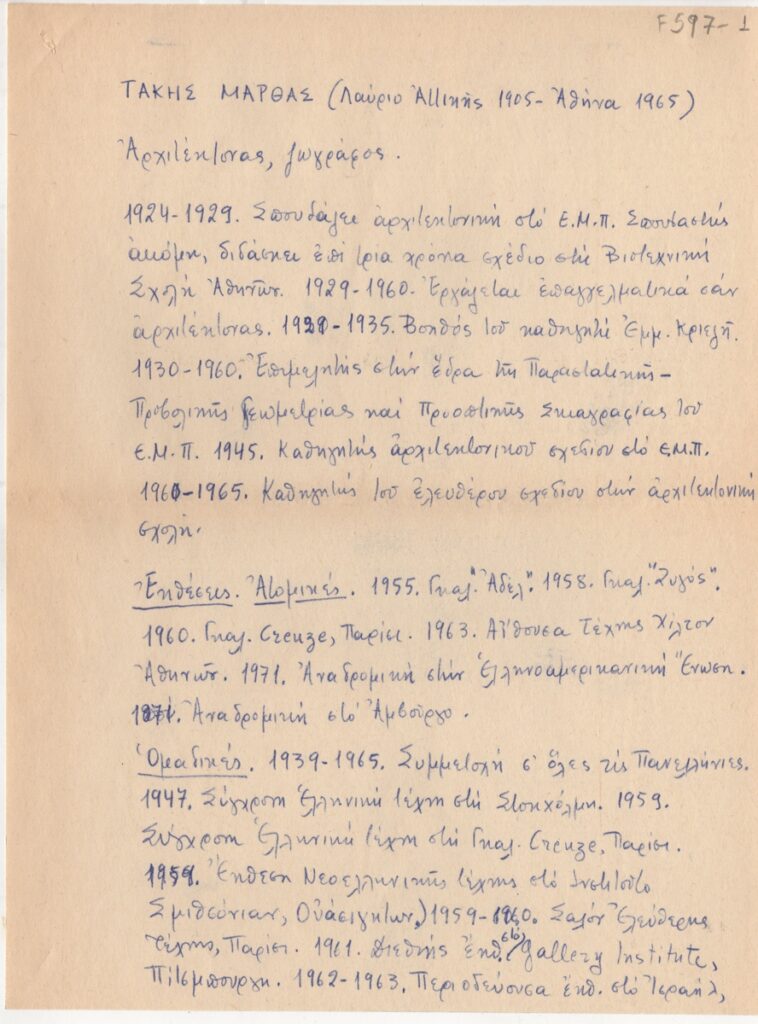 F597-1
ΤΑΚΗΣ ΜΑΡΘΑΣ (Λαύριο Ἀττικῆς 1905- Ἀθήνα 1965)
Ἀρχιτέκτονας, ζωγράφος.
1924-1929. Σπουδάζει ἀρχιτεκτονική στό Ε.Μ.Π. Σπουδαστής
ἀκόμη, διδάσκει ἐπί τρία χρόνια σχέδιο στή Βιοτεχνική
Σχολή Ἀθηνῶν. 1929-1960. Ἐργάζεται ἐπαγγελματικά σάν
ἀρχιτέκτονας. 1929-1935. Βοηθός τοῦ καθηγητῆ Ἐμμ. Κριεζῆ.
1930-1960. Ἐπιμελητής στήν ἕδρα τῆς Παραστατικῆς-
Προβολικῆς Γεωμετρίας καί Προοπτικῆς Σκιαγραφίας τοῦ
Ε.Μ.Π. 1945. Καθηγητής ἀρχιτεκτονικοῦ σχεδίου στό ΕΜ.Π.
1960-1965. Καθηγητής τοῦ ἐλευθέρου σχεδίου στήν ἀρχιτεκτονική
σχολή.
Ἐκθέσεις. Ἀτομικές. 1955. Γκαλ. "Ἀδέλ". 1958. Γκαλ. "Ζυγός".
1960. Γκαλ. Creuze, Παρίσι. 1963. Αἴθουσα Τέχνης Χίλτον
Ἀθηνῶν. 1971. Ἀναδρομική στήν Ἑλληνοαμερικανική Ἕνωση.
1971. Ἀναδρομική στό Ἀμβοῦργο.
Ὁμαδικές. 1939-1965. Συμμετοχή σ' ὅλες τίς Πανελλήνιες.
1947. Σύγχρονη Ἑλληνική τέχνη στή Στοκχόλμη. 1959.
Σύγχρονη Ἑλληνική τέχνη στή Γκαλ. Creuze, Παρίσι.
1959. Ἔκθεση Νεοελληνικῆς τέχνης στό Ινστιτοῦτο
Σμιθσόνιαν, Οὐάσιγκτων,) 1959-1960. Σαλόν Ἐλεύθερης
Τέχνης, Παρίσι. 1961. Διεθνής ἔκθ. στό Gallery Institute,
Πίτσμπουργκ. 1962-1963. Περιοδεύουσα ἔκθ. στό Ἰσραήλ,